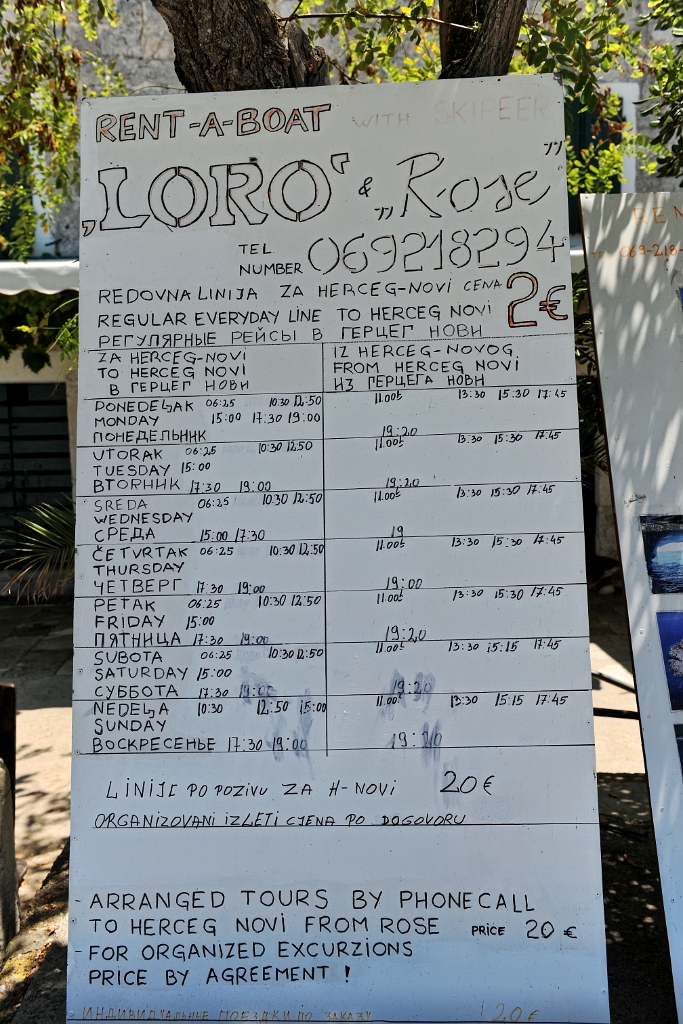 RENT-A-BOAT WITH SKIPEER
„LORO“ & „Rose”
TEL
NUMBER 069218294
REDOVNA LINIJA ZA HERCEG-NOVI CENA 2€
REGULAR EVERYDAY LINE TO HERCEG NOVI
РЕГУЛЯРНЫЕ РЕЙСЫ В ГЕРЦЕГ НОВИ
ZA HERCEG-NOVI
TO HERCEG NOVI
В ГЕРЦЕГ НОВИ
IZ HERCEG-NOVOG
FROM HERCEG NOVI
ИЗ ГЕРЦЕГА НОВИ
PONEDELJAK 06:25 10:30 12:50 11.00 13:30 15:30 17:45
MONDAY 15:00 17:30 19:00
ПОНЕДЕЛЬНИК 19:20
UTORAK 06:25 10:30 12:50 11.00 13:30 15:30 17:45
TUESDAY 15:00
ВТОРНИК 17:30 19:00 19:20
SREDA 06:25 10:30 12:50 11.00 13:30 15:30 17:45
WEDNESDAY
СРЕДА 15:00 17:30 19
ČETVRTAK 06:25 10:30 12:50 11.00 13:30 15:30 17:45
THURSDAY
ЧЕТВЕРГ 17:30 19:00 19:00
PETAK 06:25 10:30 12:50 11.00 13:30 15:30 17:45
FRIDAY 15:00
ПЯТНИЦА 17:30 19:00 19:20
SUBOTA 06:25 10:30 12:50 11.00 13:30 15:15 17:45
SATURDAY 15:00
СУББОТА 17:30 19:00 19:20
NEDELJA 10:30 12:50 15:00 11.00 13:30 15:15 17:45
SUNDAY
ВОСКРЕСЕНЬЕ 17:30 19:00 19:20
LINIJE PO POZIVU ZA H-NOVI 20€
ORGANIZOVANI IZLETI CJENA PO DOGOVORU
- ARRANGED TOURS BY PHONECALL
TO HERCEG NOVI FROM ROSE PRICE 20 €
- FOR ORGANIZED EXCURZIONS
PRICE BY AGREEMENT !
ИНДИВИДУАЛЬНЫЕ ПОЕЗДКИ ПО ЗАКАЗУ 20€
REN
069-218-